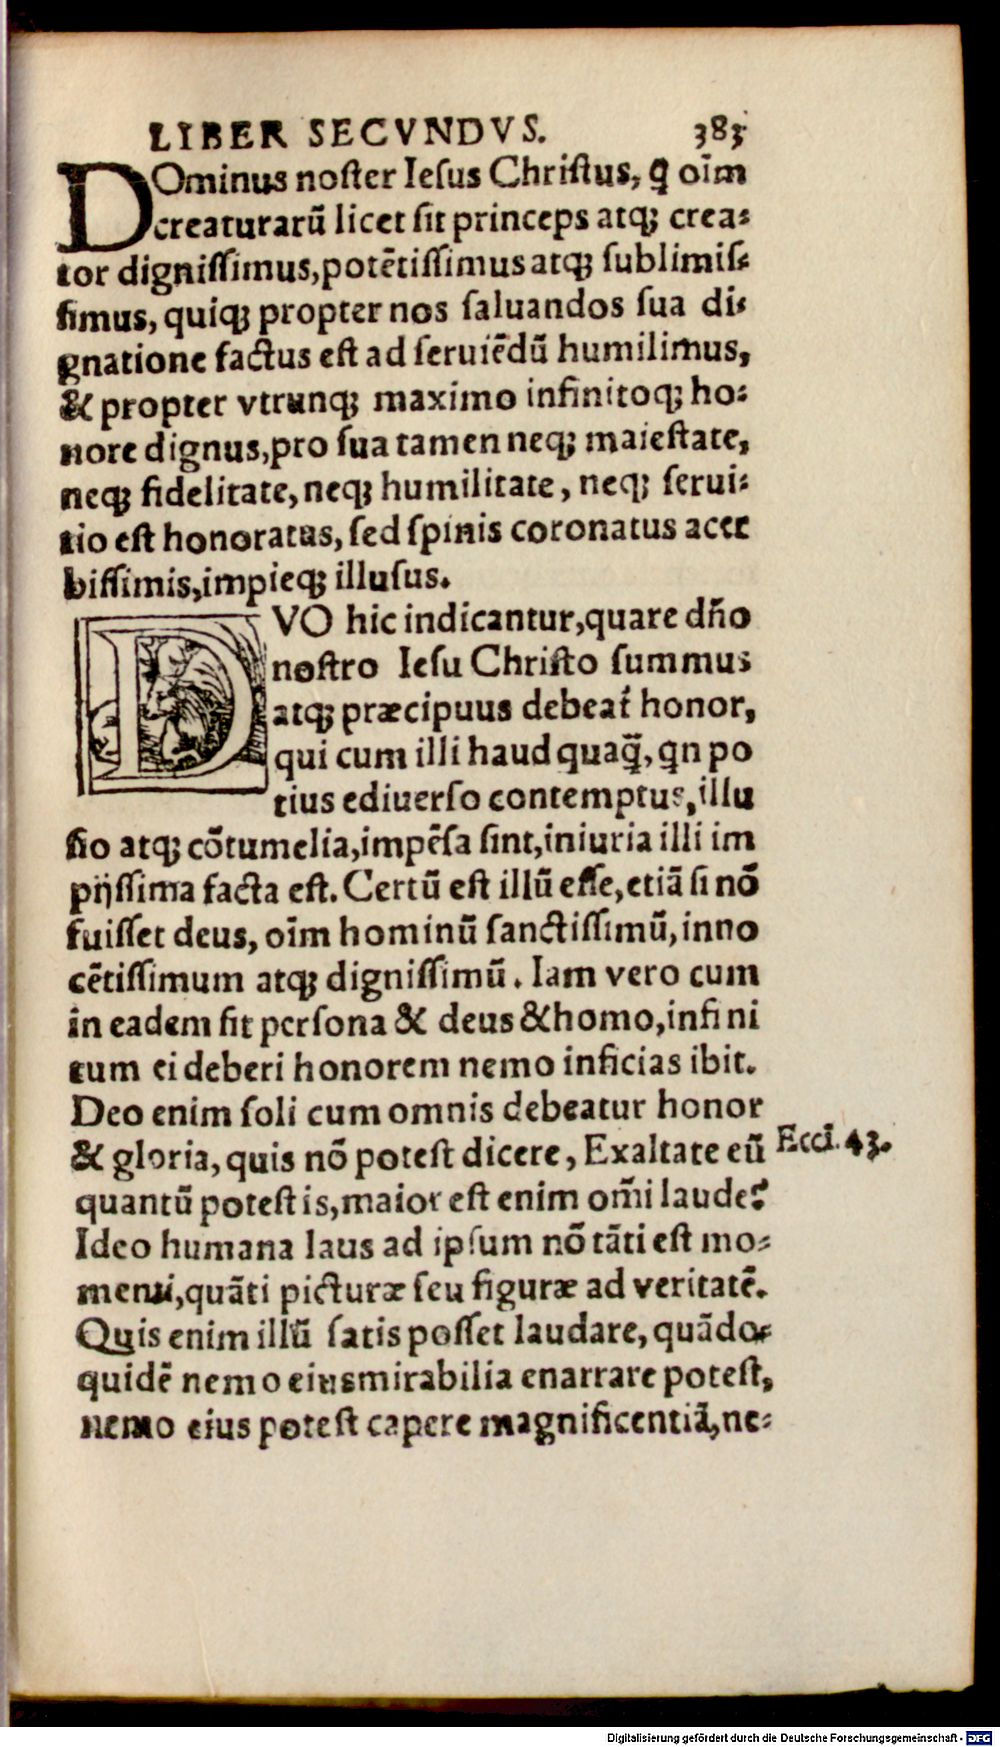 LIBER SECVNDVS. 383
DOminus noster Iesus Christus, q̃ oĩm
creaturarũ licet sit princeps atq; crea-
tor dignissimus, potẽtissimus atq; sublimis-
simus, quiq; propter nos saluandos sua di-
gnatione factus est ad seruiẽdũ humilimus,
& propter vtrunq; maximo infinitoq; ho-
nore dignus, pro sua tamen neq; maiestate,
neq; fidelitate, neq; humilitate, neq; serui-
tio est honoratus, sed spinis coronatus acer
bissimis, impieq; illusus.
DVO hic indicantur, quare dño
nostro Iesu Christo summus
atq; præcipuus debeat̃ honor,
qui cum illi haud quaq̃, qn po
tius ediuerso contemptus, illu
sio atq; cõtumelia, impẽsa sint, iniuria illi im
pijssima facta est. Certũ est illũ esse, etiã si nõ
fuisset deus, oĩm hominũ sanctissimũ, inno
cẽtissimum atq; dignissimũ. Iam vero cum
in eadem sit persona & deus & homo, infini
tum ei deberi honorem nemo inficias ibit.
Deo enim soli cum omnis debeatur honor
& gloria, quis nõ potest dicere, Exaltate eũ
Eccĩ. 43.
quantũ potestis, maior est enim om̃i laude?
Ideo humana laus ad ipsum nõ tãti est mo-
menti, quãti picturæ seu figuræ ad veritatẽ.
Quis enim illũ satis posset laudare, quãdo-
quidẽ nemo eius mirabilia enarrare potest,
nemo eius potest capere magnificentiã, ne-
Digitalisierung gefördert durch die Deutsche Forschungsgemeinschaft - DFG